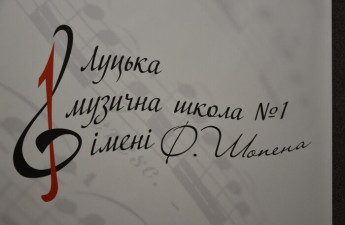 Луцька
музична школа №1
імені Ф. Шопена
sc.